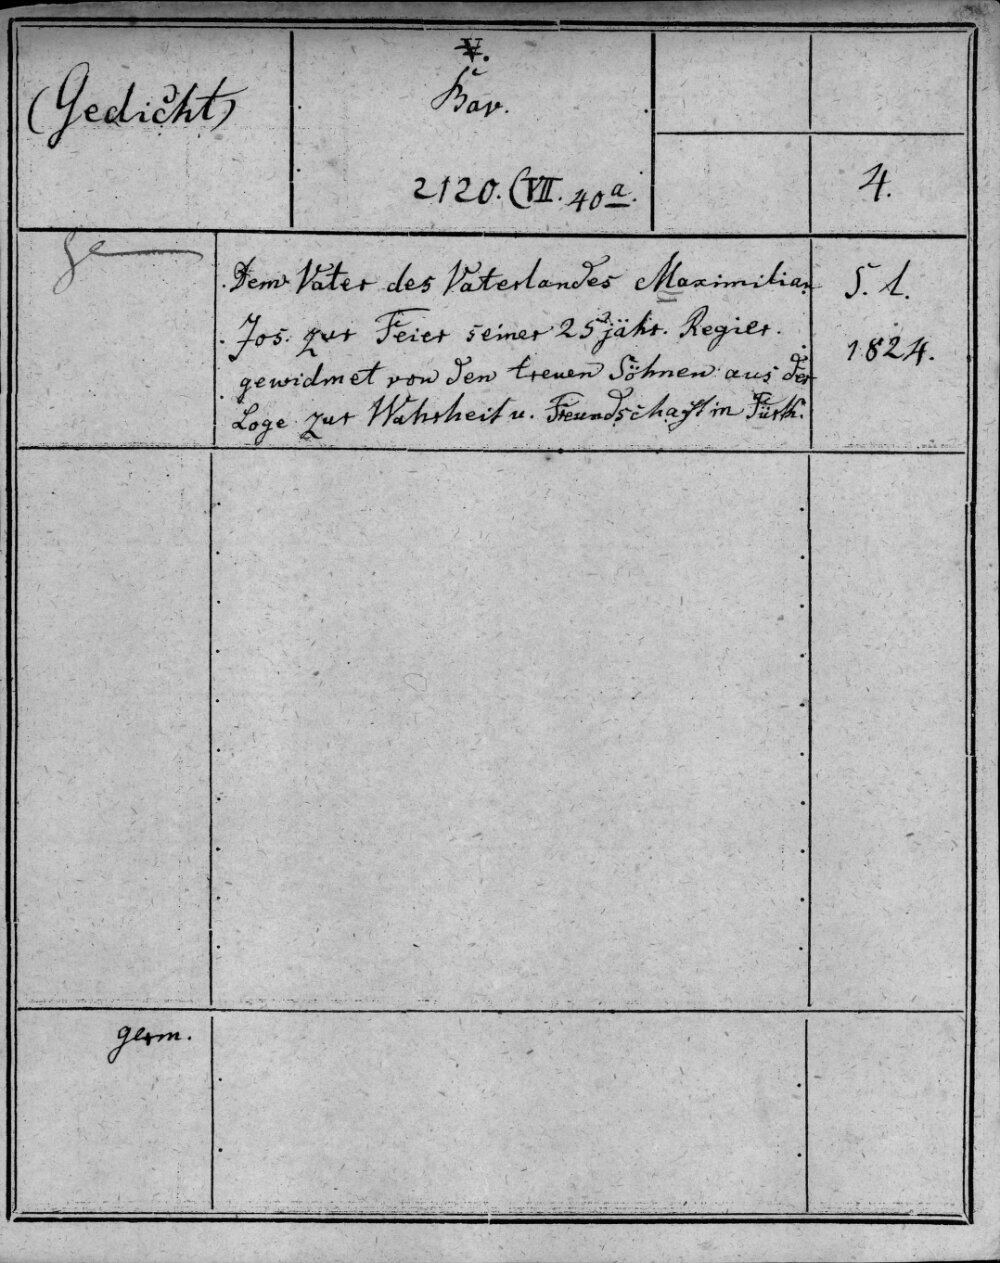 (Gedicht)
V.
Bav.
2120. (VII. 40 a.
4.
Dem Vater des Vaterlandes Maximilian
Jos. zur Feier seiner 25jähr. Regier.
gewidmet von den treuen Söhnen aus der
Loge zur Wahrheit u. Freundschaft in Fürth.
S. l.
1824.
germ.